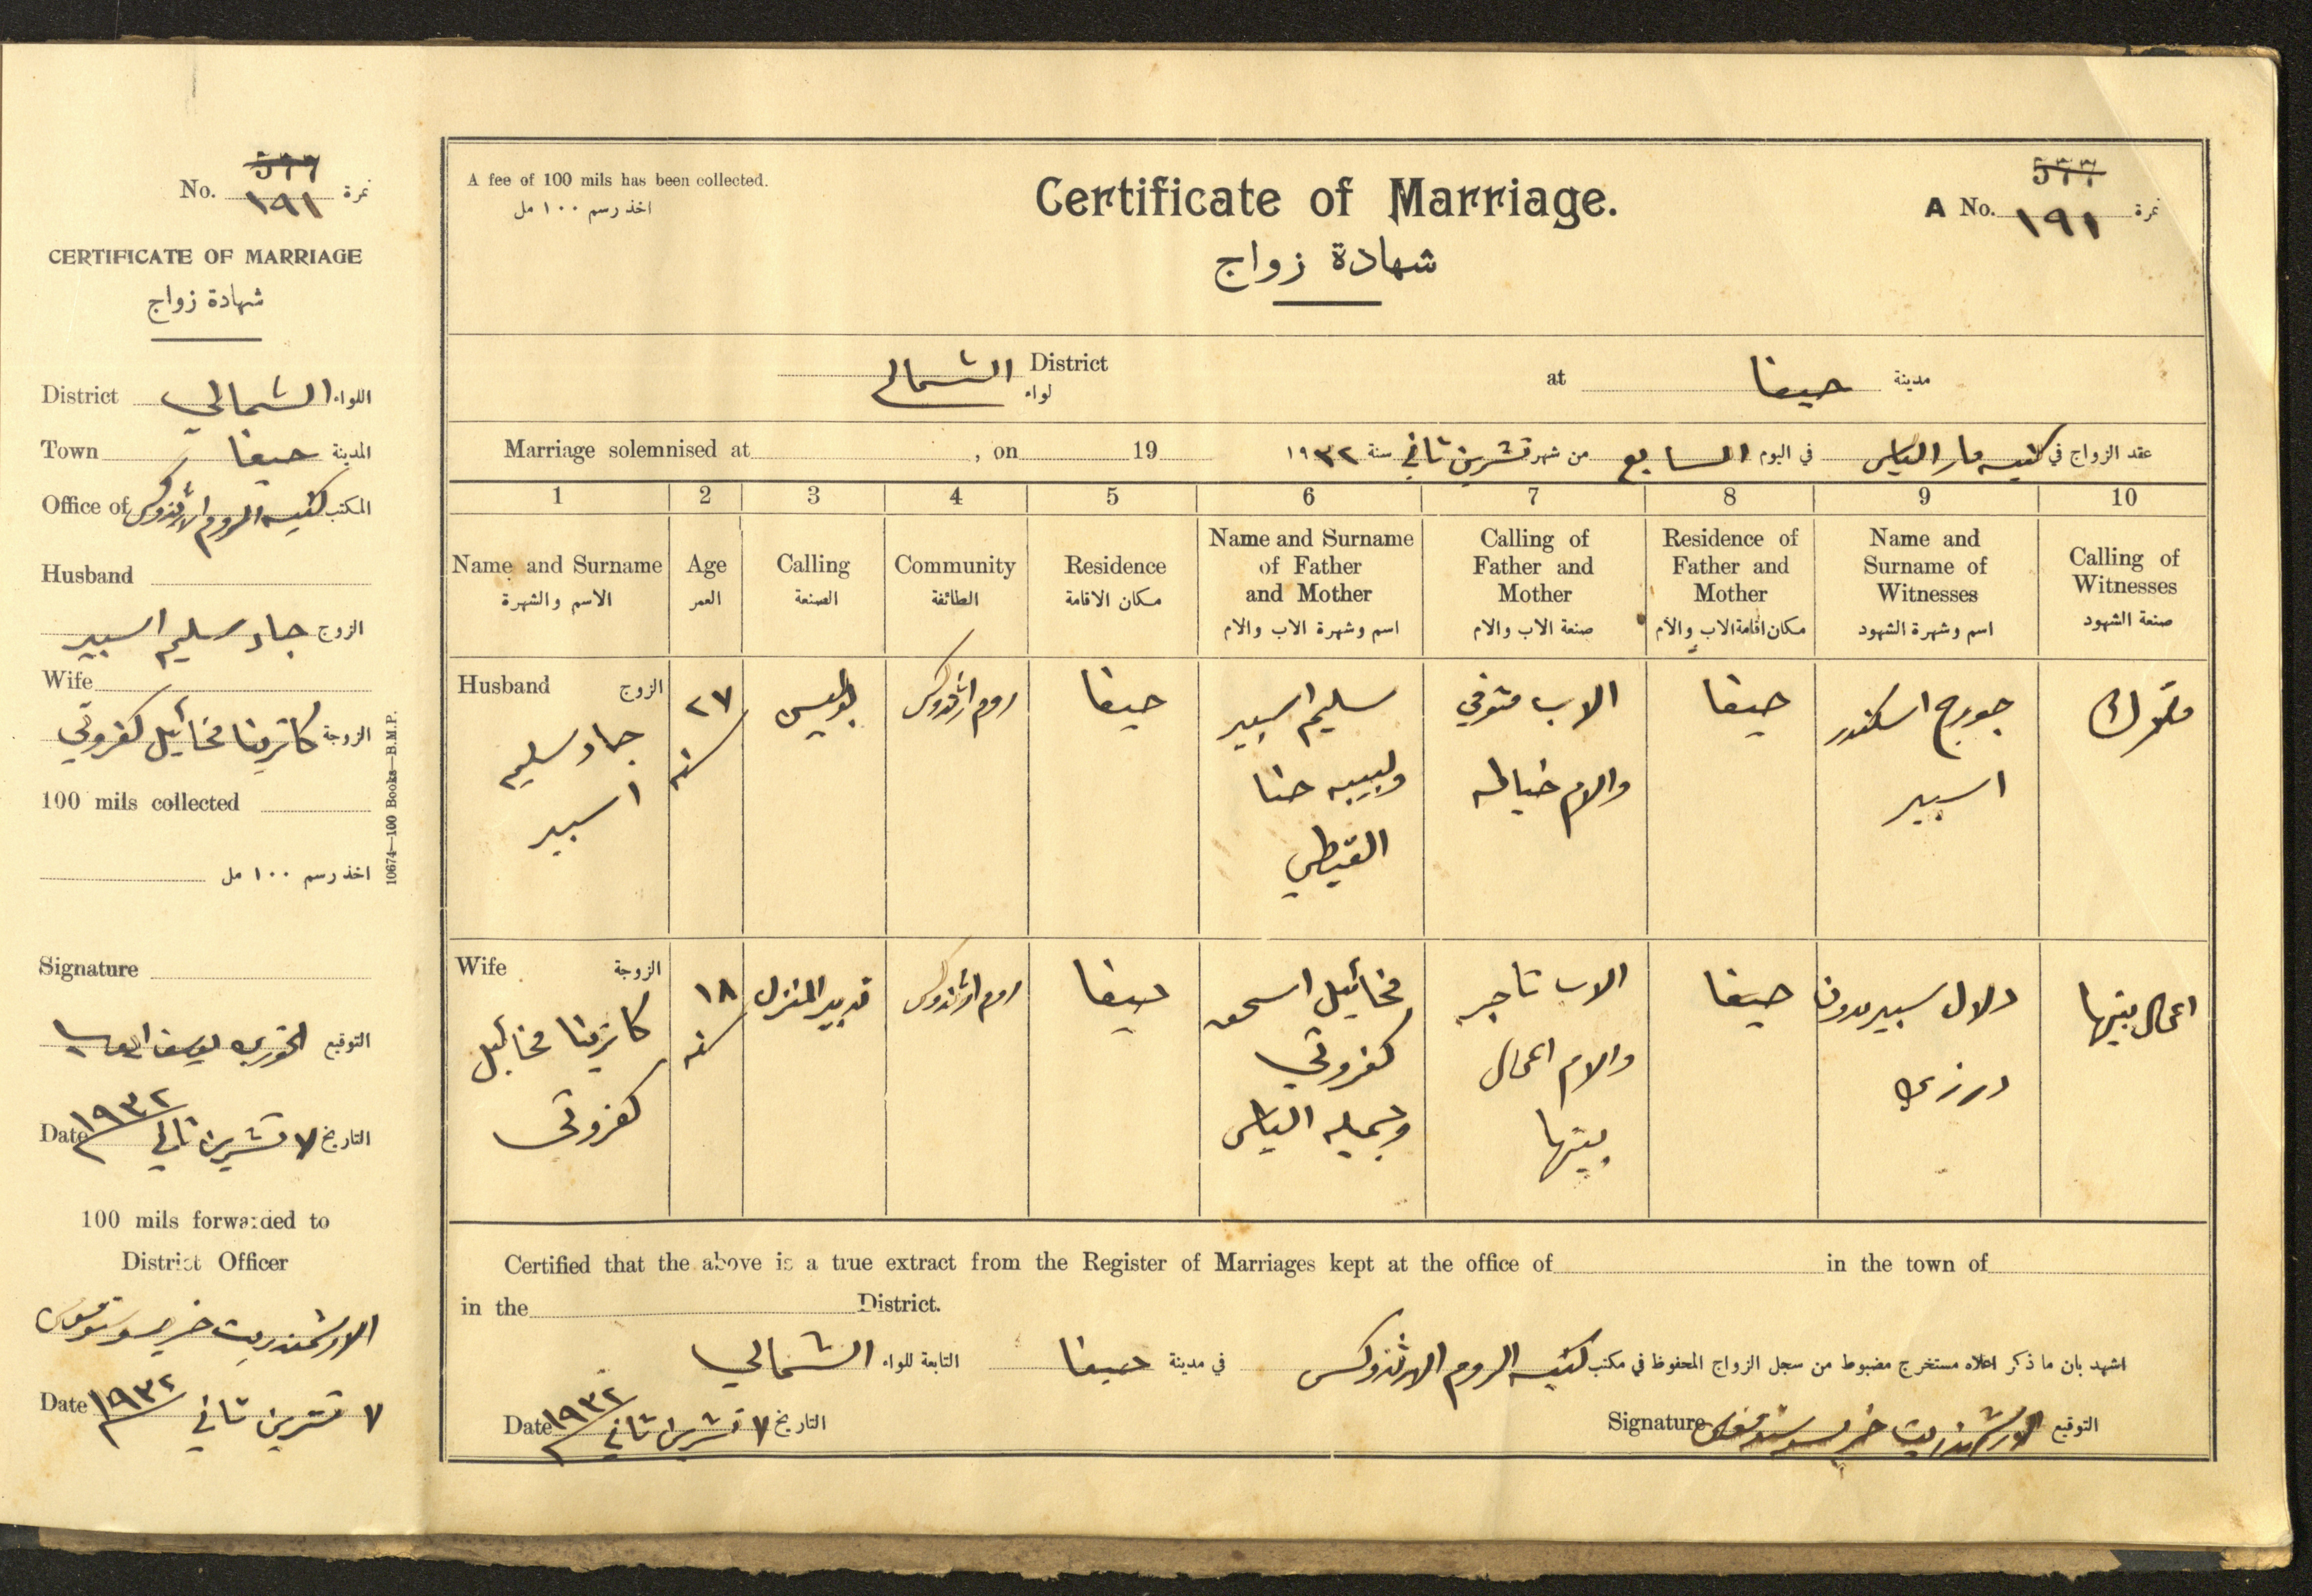 No. ١٩١ نمرة
CERTIFICATE OF MARRIAGE
شهادة زواج
District الشمالي اللواء
Town حيفا المدينة
Office of كنيسة الروم الارثوذكس المكتب
Husband
الزوج جاد سليم اسبير
Wife
الزوجة كاترينا مخائيل كفروتي
100 mils collected
اخذ رسم ١٠٠ مل
10674—100 Books—B.M.P.
Signature
التوقيع الخوري يوسف
Date ١٩٣٢ ٧ تشرين ثاني التاريخ
100 mils forwarded to
District Officer
الارشمندريت
Date ١٩٣٢ ٧ تشرين ثاني
A fee of 100 mils has been collected.
اخذ رسم ١٠٠ مل
Certificate of Marriage.
شهادة زواج
577
A No. ١٩١ نمرة
الشمالي District
لواء
at حيفا مدينة
Marriage solemnised at , on 19
عقد الزواج في كنيسة مار الياس في اليوم السابع من شهر تشرين ثاني سنة ١٩٣٢
1 2 3 4 5 6 7 8 9 10
Name and Surname
الاسم والشهرة
Age
العمر
Calling
الصنعة
Community
الطائفة
Residence
مكان الاقامة
Name and Surname
of Father
and Mother
اسم وشهرة الاب والام
Calling of
Father and
Mother
صنعة الاب والام
Residence of
Father and
Mother
مكان اقامة الاب والام
Name and
Surname of
Witnesses
اسم وشهرة الشهود
Calling of
Witnesses
صنعة الشهود
Husband الزوج
جاد سليم
اسبير
٢٧
سنه
بوليس
روم ارثوذكس
حيفا
سليم اسبير
ولبيبه حنا
القبطي
الاب متوفي
والام خياطه
حيفا
جورج اسكندر
اسبير
Wife الزوجة
كاترينا مخائيل
كفروتي
١٨
سنه
تدبير المنزل
روم ارثوذكس
حيفا
مخائيل اسحق
كفروتي
وجميله الياس
الاب تاجر
والام اعمال
بيتها
حيفا
درزي
اعمال بيتها
Certified that the above is a true extract from the Register of Marriages kept at the office of in the town of
in the District.
اشهد بان ما ذكر اعلاه مستخرج مضبوط من سجل الزواج المحفوظ في مكتب كنيسة الروم الارثوذكس في مدينة حيفا التابعة للواء الشمالي
Date ١٩٣٢ ٧ تشرين ثاني التاريخ
Signature الارشمندريت التوقيع